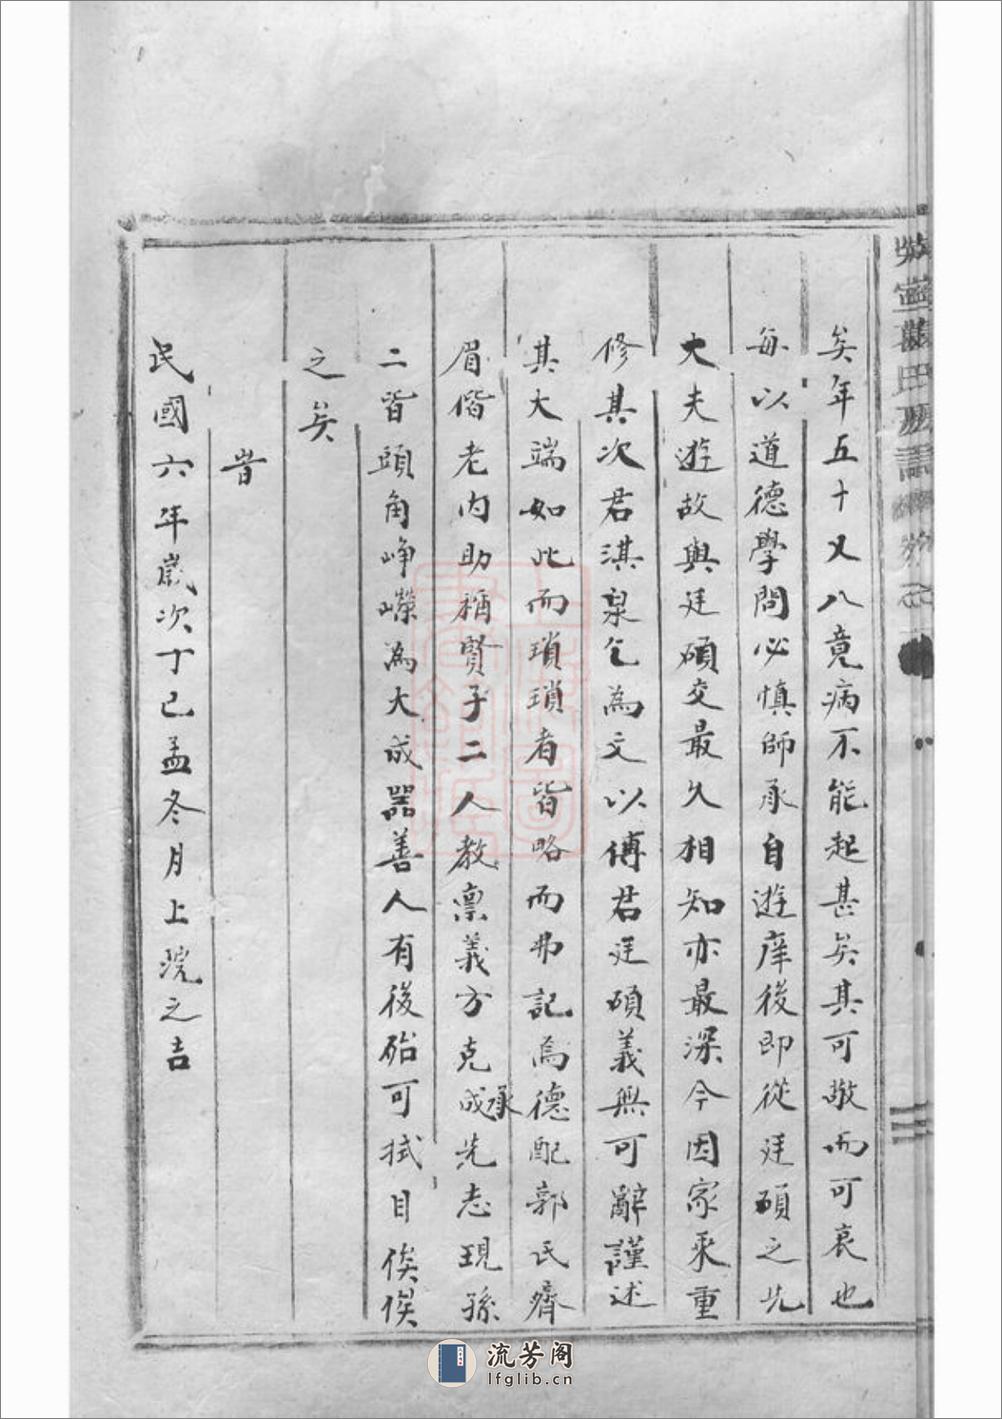 矣年五十又八竟病不能起甚矣其可敬而可哀也
每以道德學問必慎師承自遊庠後即從廷碩之先
大夫遊故與廷碩交最久相知亦最深今因家乘重
修其次君淇泉乞為文以傳君廷碩義無可辭謹述
其大端如此而瑣瑣者皆略而弗記焉德配郭氏齊
眉偕老內助稱賢子二人教稟義方克成承先志現孫
二皆頭角崢嶸為大成器善人有後殆可拭目俟俟
之矣
旹
民國六年歲次丁巳孟冬月上浣之吉
流芳阁
lfglib.cn